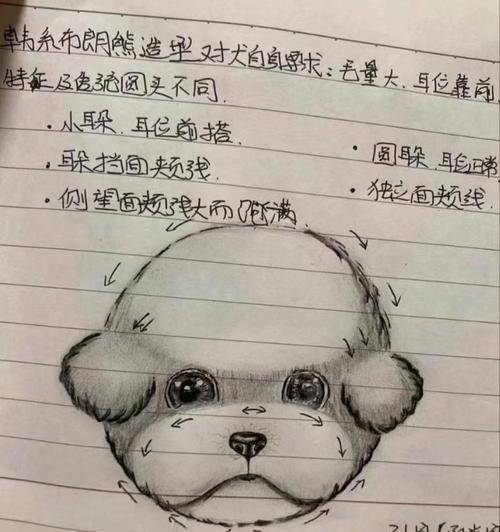 韩系布朗熊造型对犬的要求：毛量大、耳位靠前
特征及与传统圆头不同.
· 小耳朵. 耳位前搭
· 圆耳朵. 耳位正常
· 耳朵挡面颊线.
· 独立面颊线.
· 侧望面颊强大而饱满.